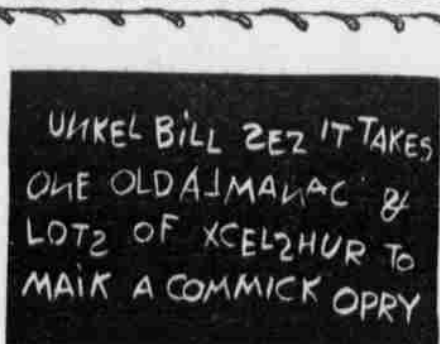 UNKEL BILL SEZ IT TAKES
ONE OLD ALMANAC &
LOTS OF XCELSHUR TO
MAIK A COMMICK OPRY